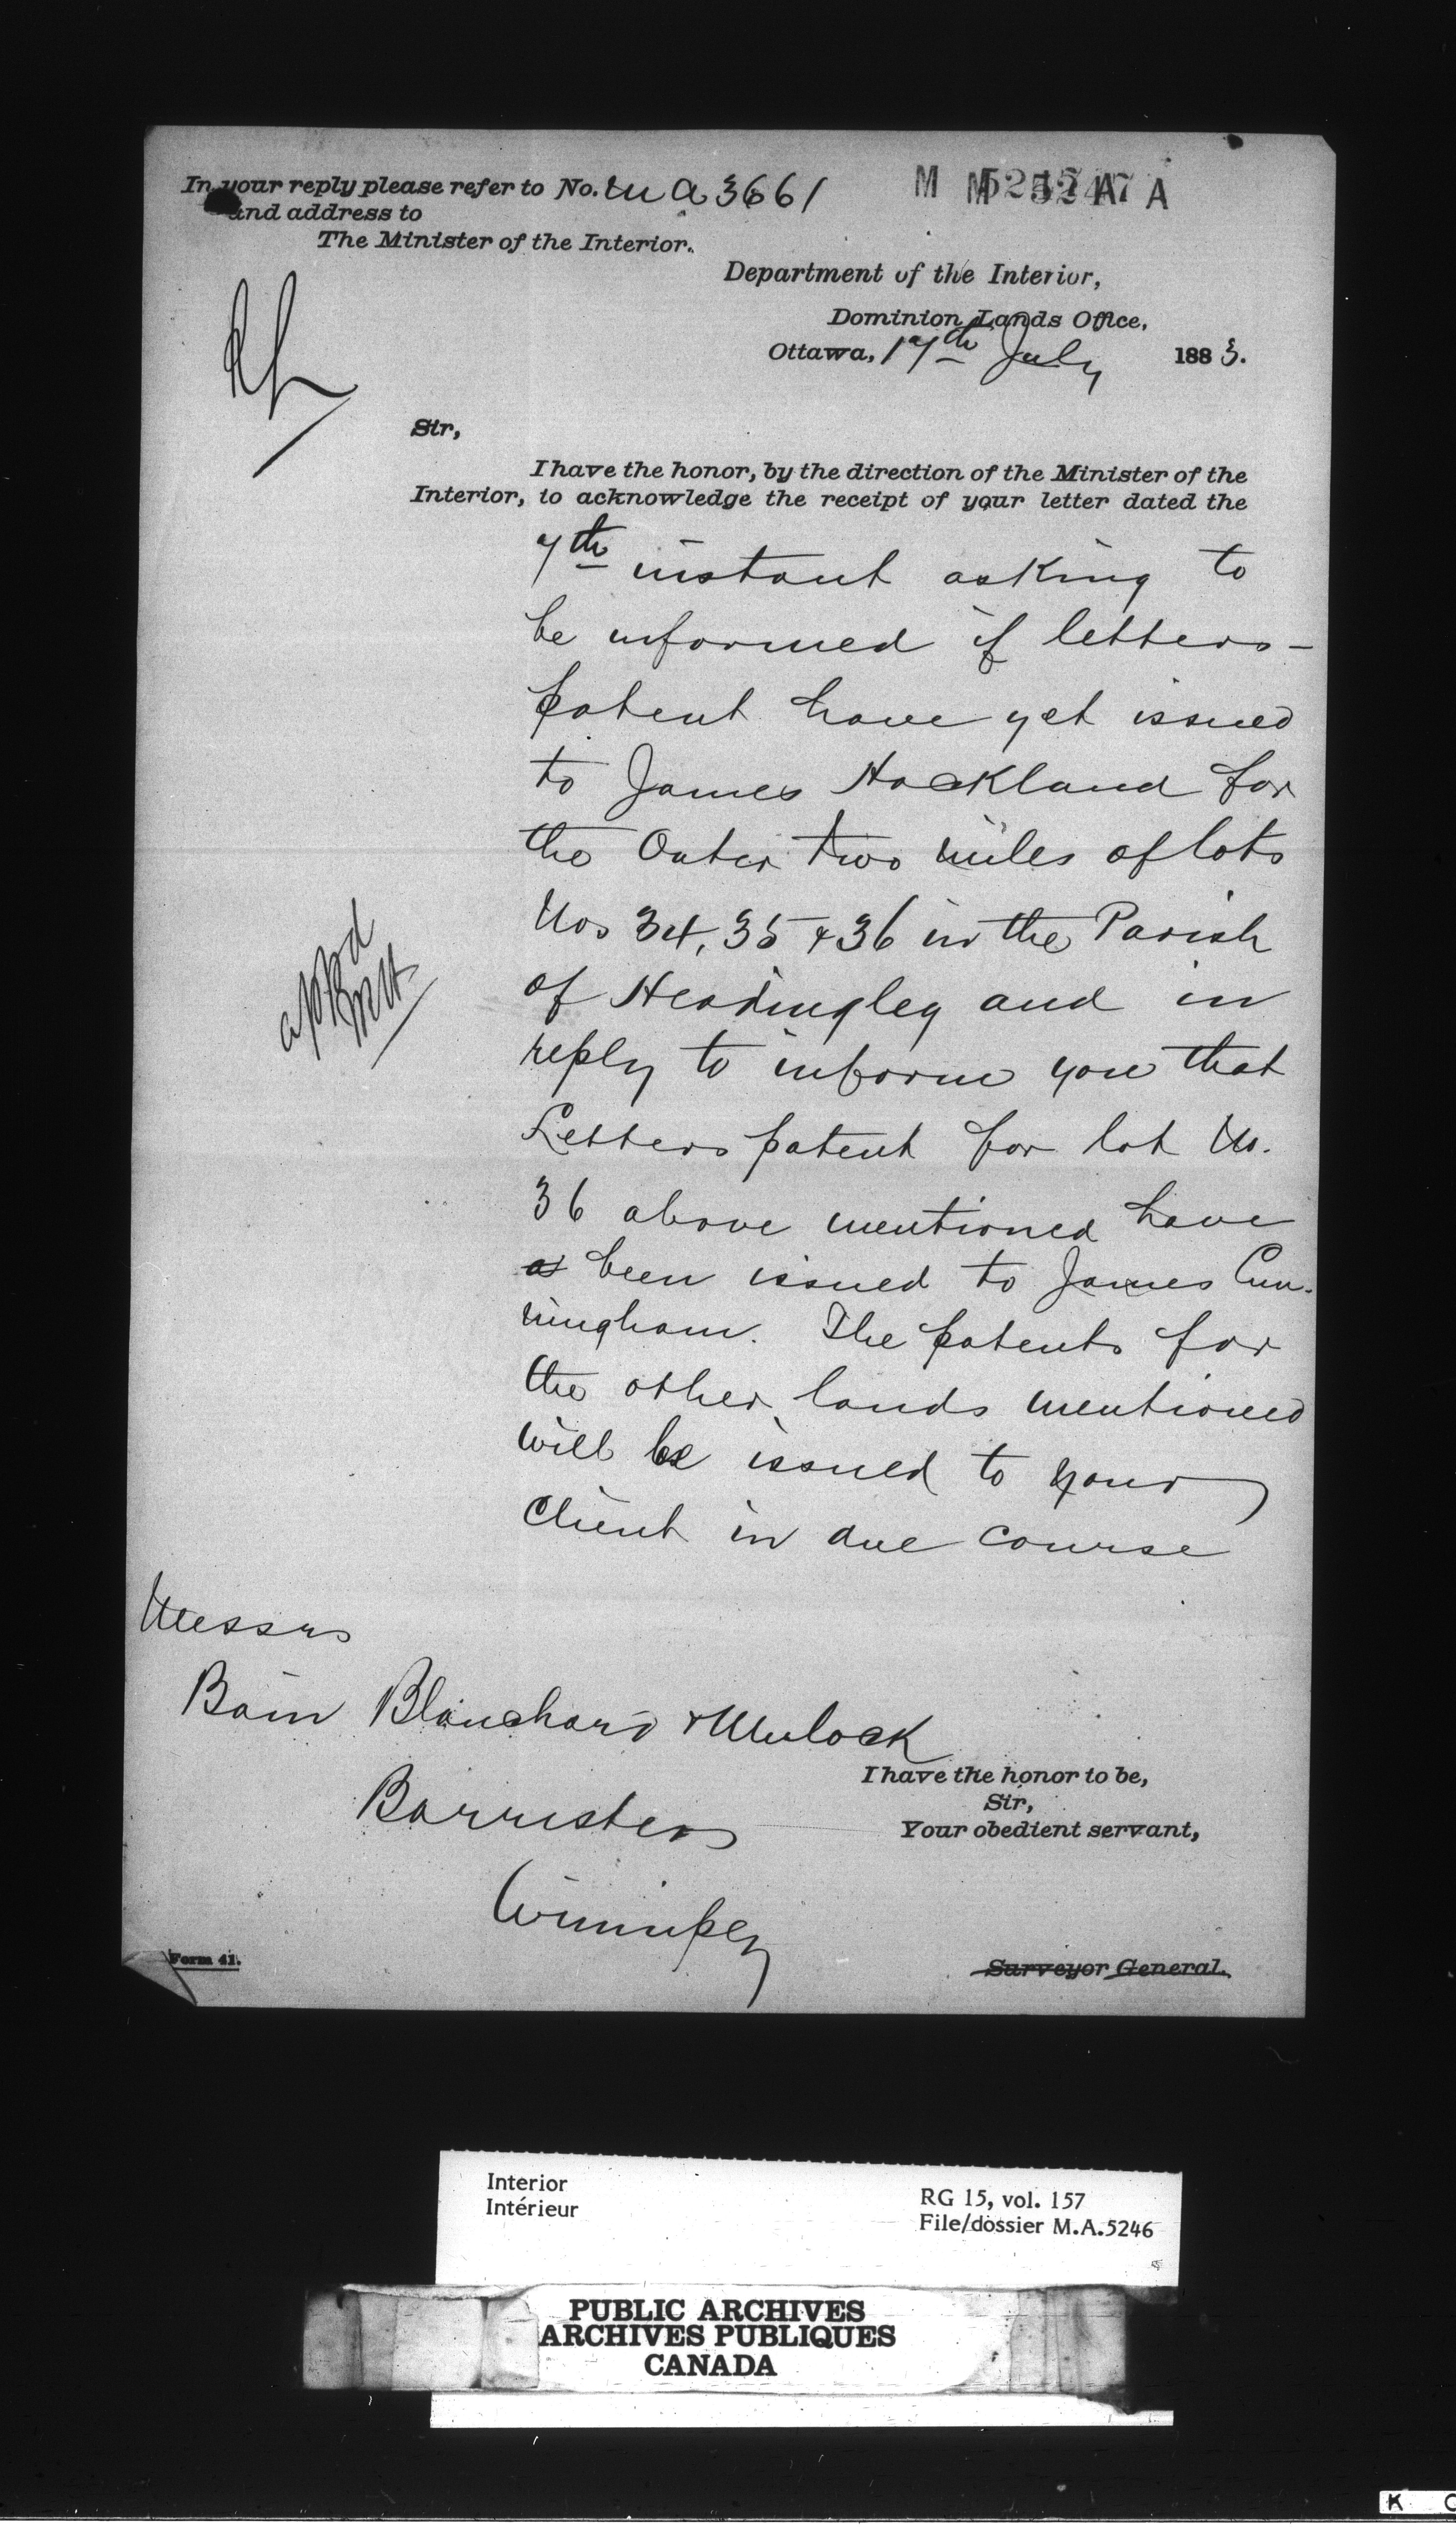 In your reply please refer to No. M A 3661
and address to
The Minister of the Interior.
Department of the Interior,
Dominion Lands Office,
Ottawa, 17th July 1883.
Sir,
I have the honor, by the direction of the Minister of the
Interior, to acknowledge the receipt of your letter dated the
7th instant asking to
be informed if letters-
patent have yet issued
to James Hackland for
the Outer two miles of lots
Nos 34, 35 & 36 in the Parish
of Headingley and in
reply to inform you that
Letters patent for lot No.
36 above mentioned have
as been issued to James Cun-
ningham. The patents for
the other lands mentioned
will be issued to your
Client in due course
Messrs
Bain Blanchard & Mulock
Barristers
Winnipeg
I have the honor to be,
Sir,
Your obedient servant,
Form 41.
Surveyor General.
Interior
Intérieur
RG 15, vol. 157
File/dossier M.A.5246
PUBLIC ARCHIVES
ARCHIVES PUBLIQUES
CANADA